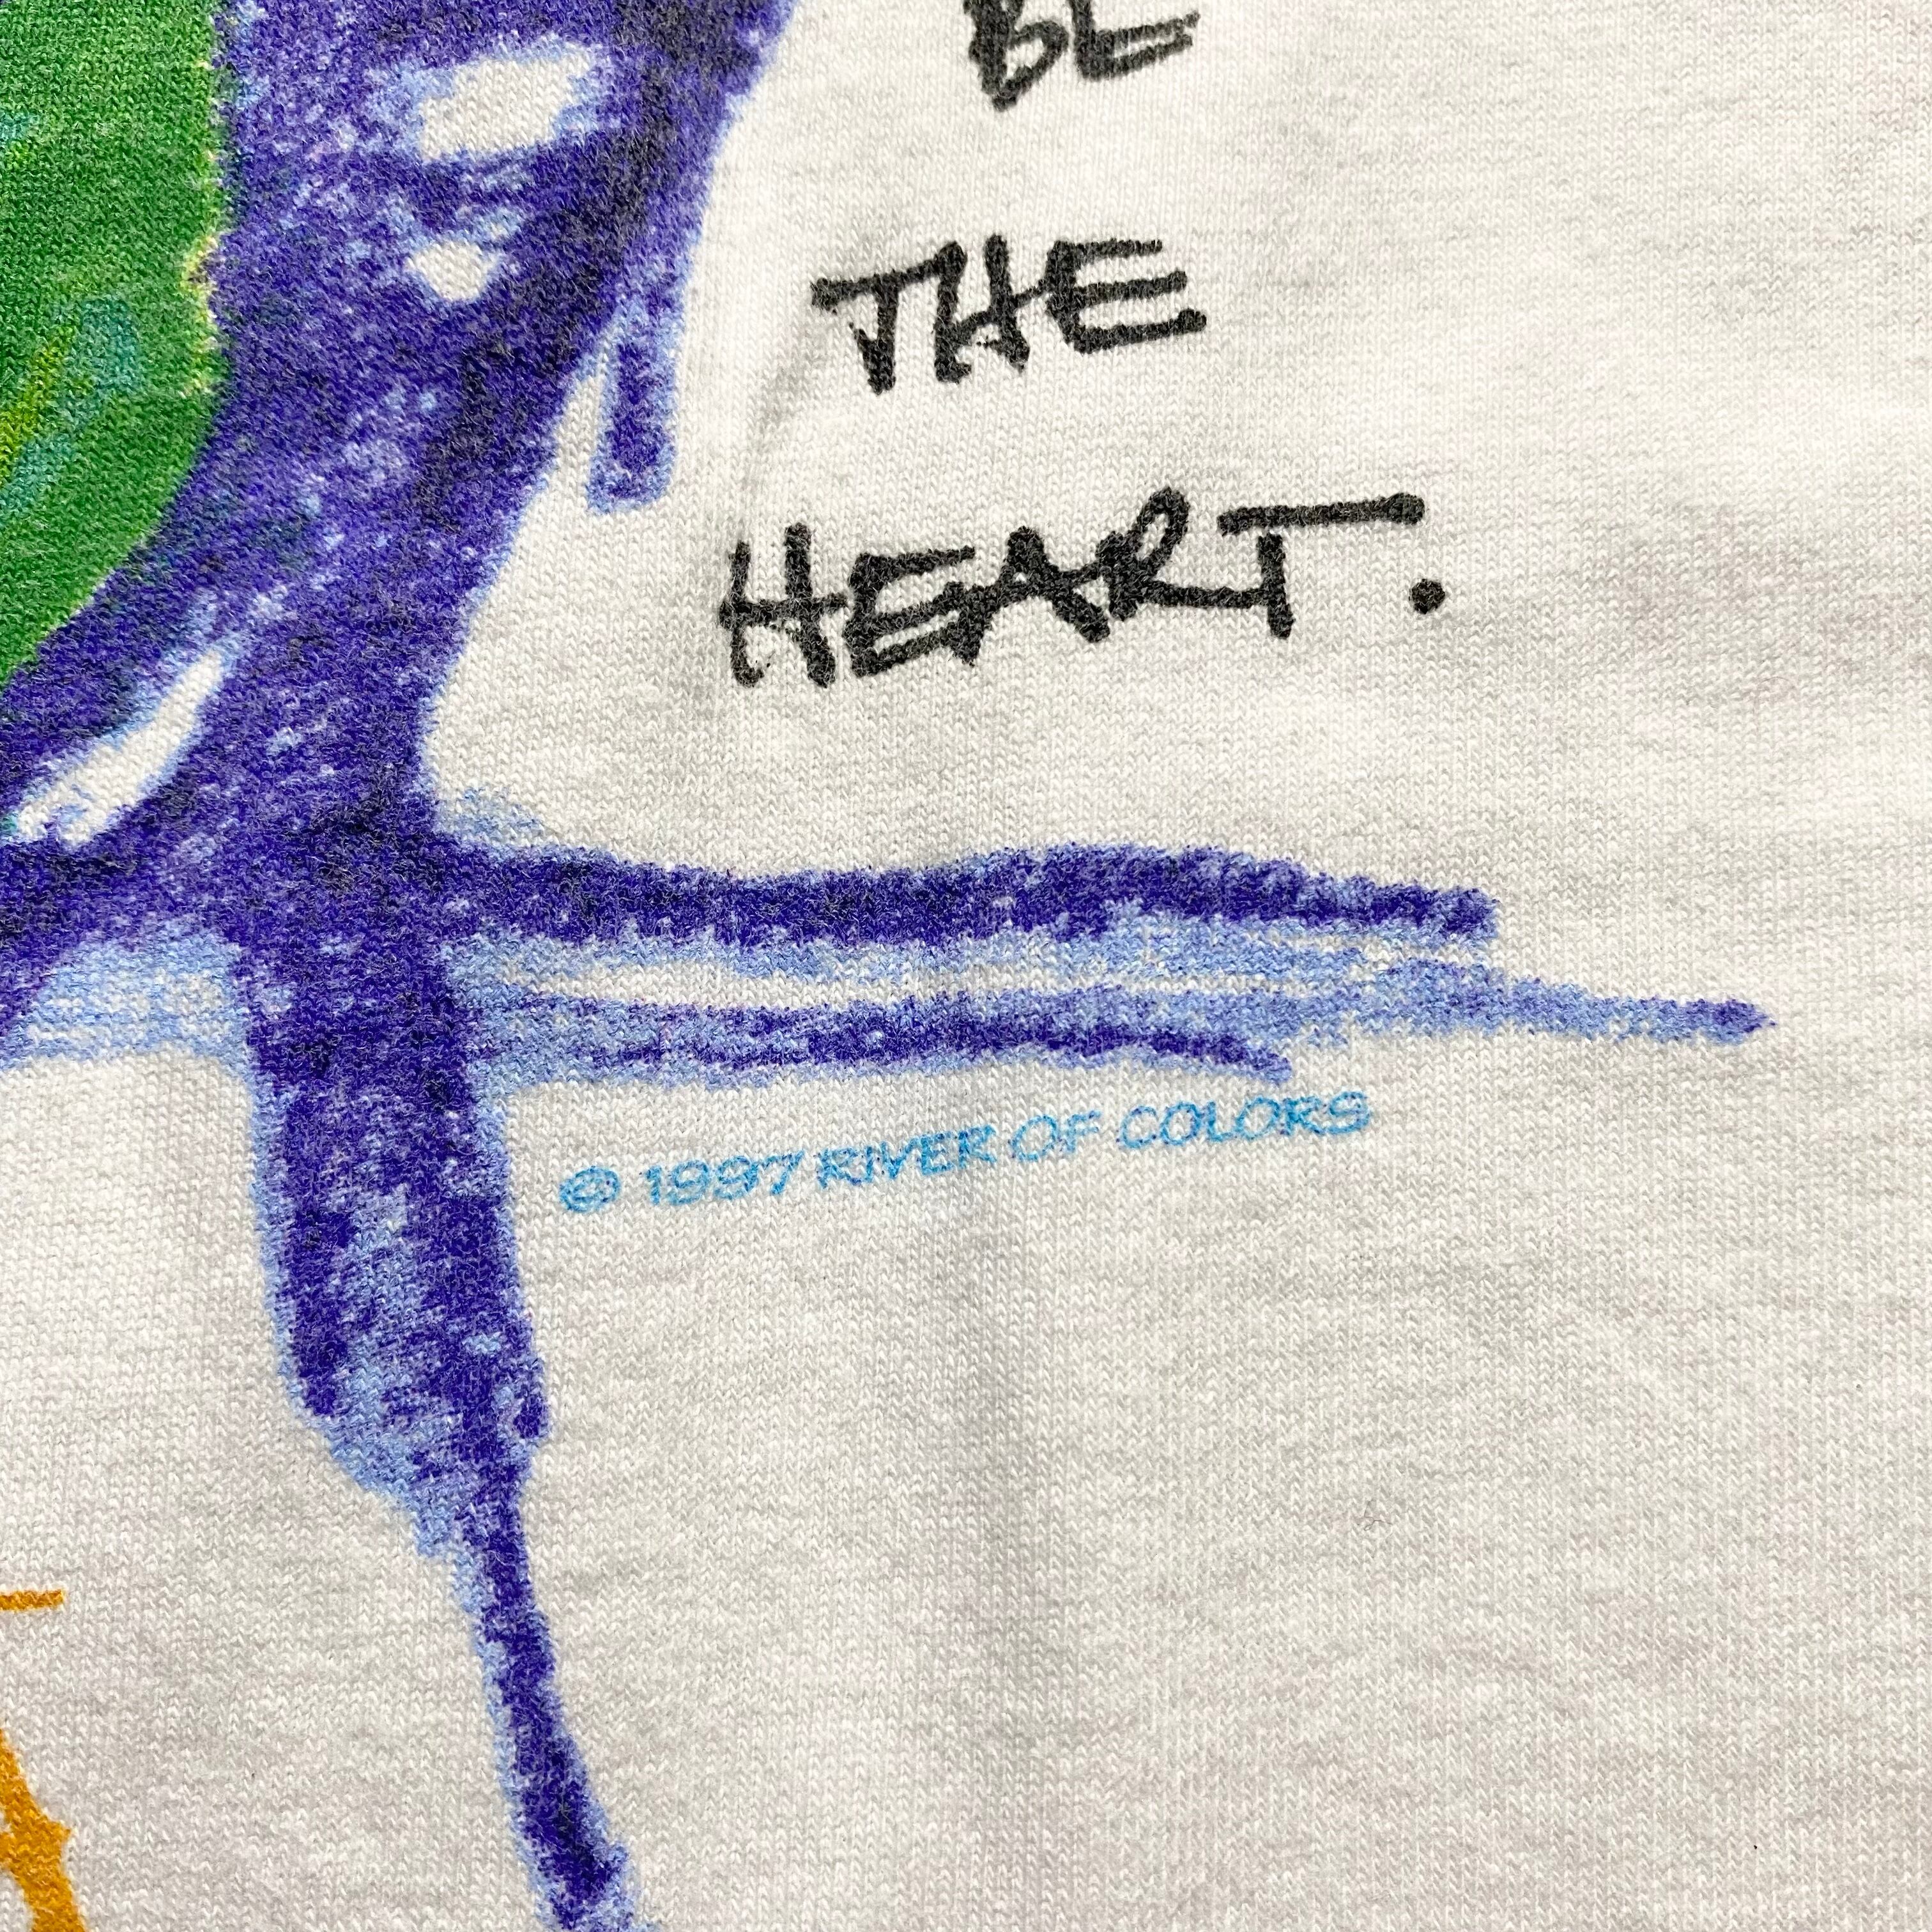 BE
THE
HEART.
© 1997 RIVER OF COLORS